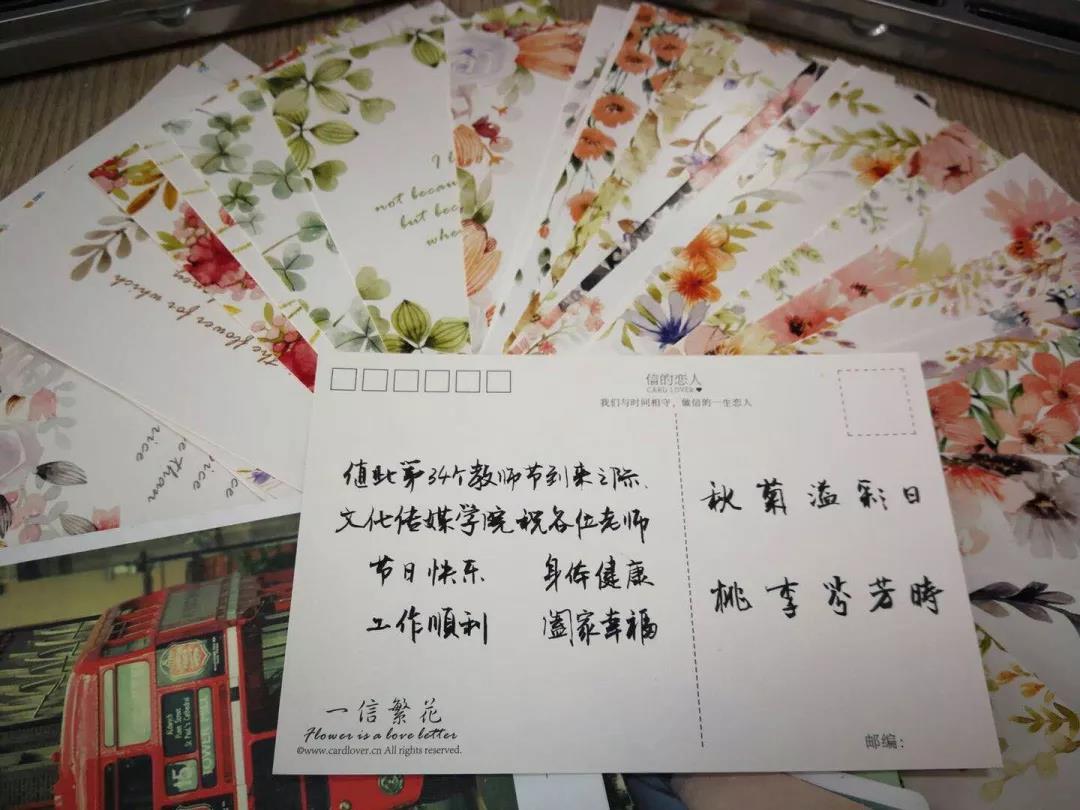 I l
not becau
but bec
whe
the flower for which
信的恋人
CARD LOVER
我们与时间相守，做信的一生恋人
值此第34个教师节到来之际、
文化传媒学院祝各位老师
节日快乐 身体健康
工作順利 阖家幸福
秋菊溢彩日
桃李芬芳時
一信繁花
Flower is a love letter
©www.cardlover.cn All rights reserved.
邮编:
15
St Paul's Cathedral
TOWER HILL